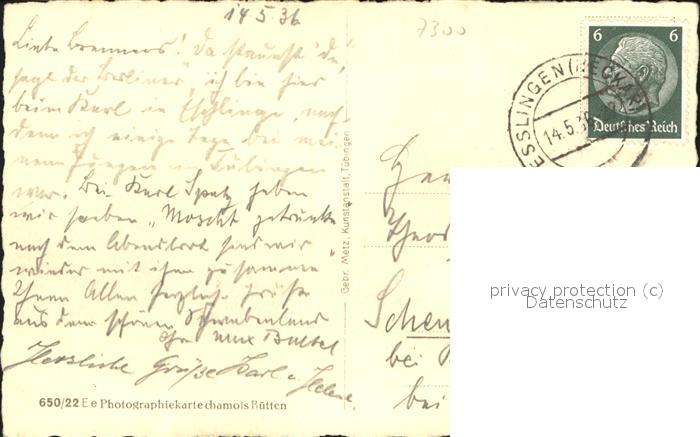 14 5 36
7300
Liebe Brenners! Da staunst Du,
sagt der Berliner, ich bin hier
beim Karl in Esslingen, nach-
dem ich einige Tage bei mei-
nem Jungen in Tübingen
war. Bei Karl Spatz haben
wir soeben "Moscht getrunken"
nach dem Abendbrot sind wir
wieder mit ihm zusammen
Ihnen Allen herzliche Grüße
aus dem schönen Schwabenland
Ihr Max
Herzliche Grüße Karl u. Helene.
650/22 E e Photographiekarte chamois Bütten
Gebr. Metz, Kunstanstalt, Tübingen
6 6
Deutsches Reich
ESSLINGEN (NECKAR)
14.5.36
bei
bei
privacy protection (c)
Datenschutz